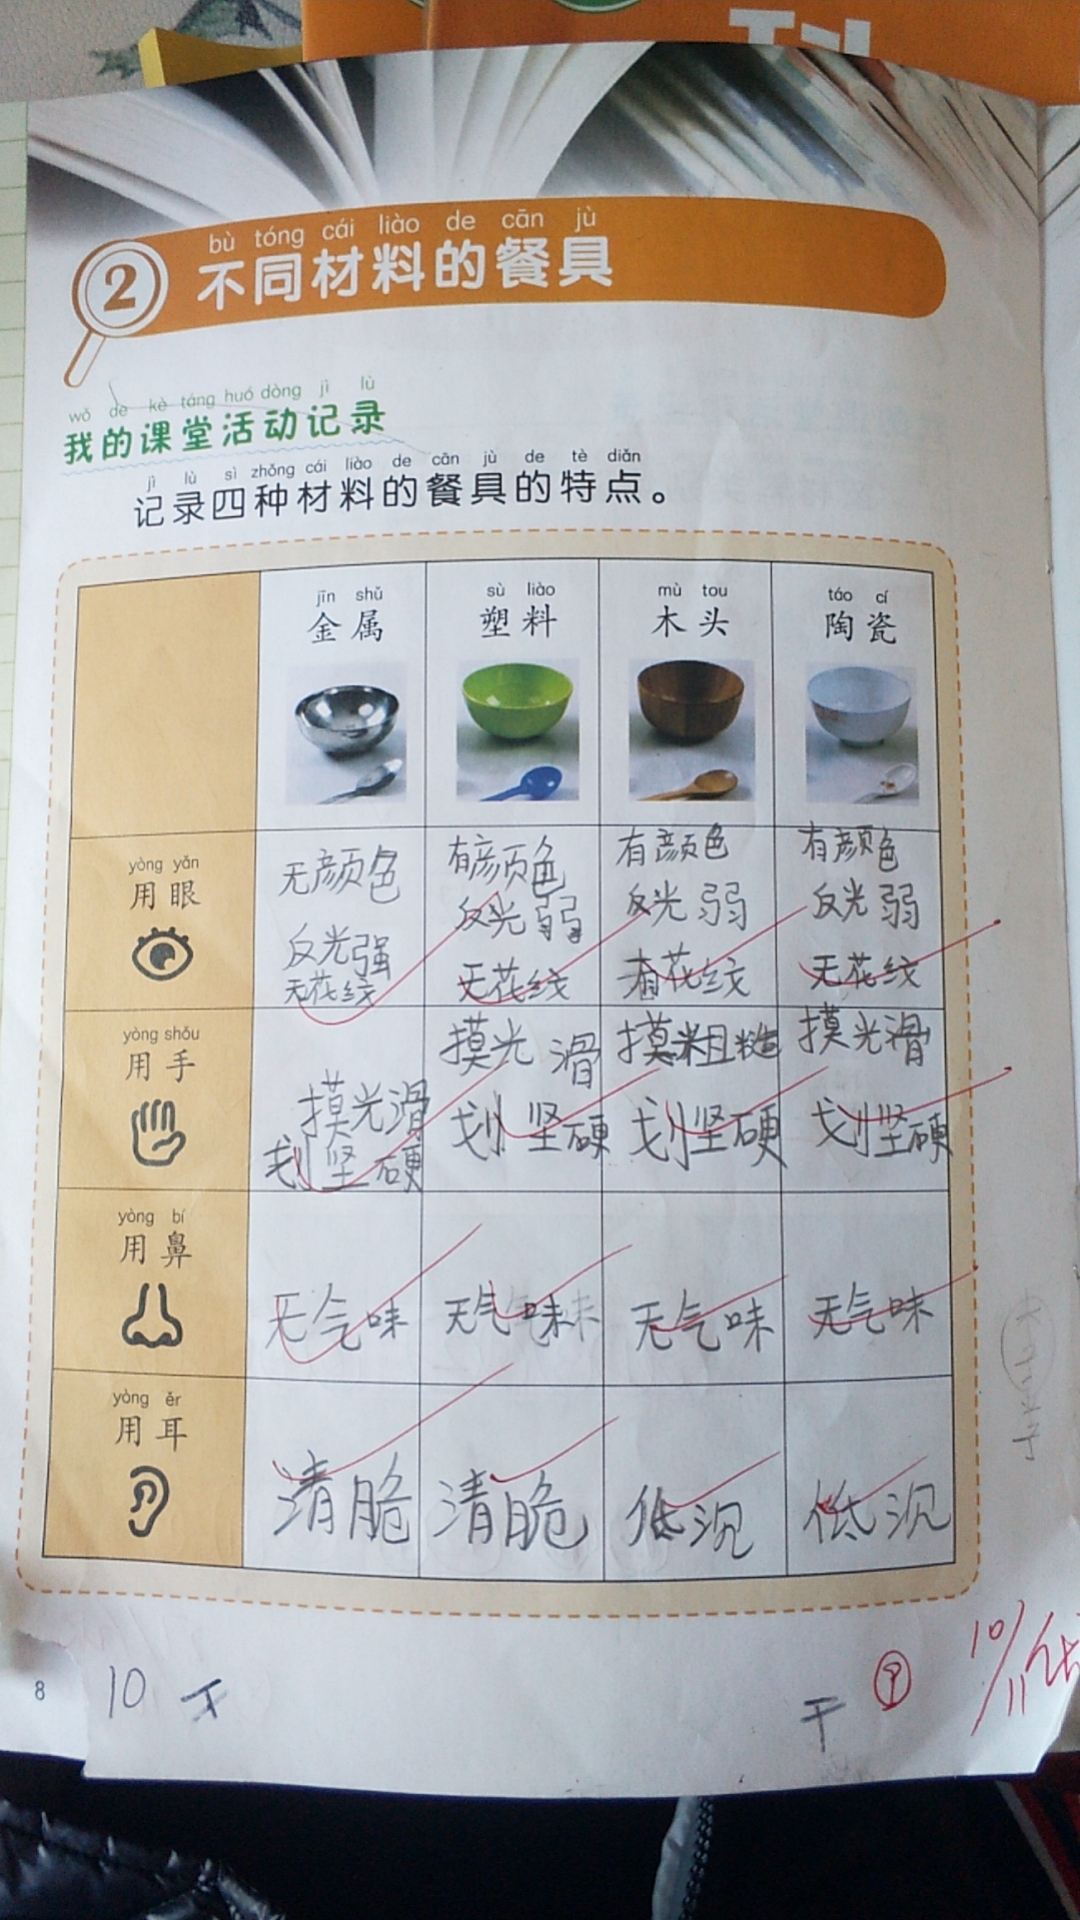 bù tóng cái liào de cān jù
2 不同材料的餐具
wǒ de kè táng huó dòng jì lù
我的课堂活动记录
jì lù sì zhǒng cái liào de cān jù de tè diǎn
记录四种材料的餐具的特点。
jīn shǔ sù liào mù tou táo cí
金属 塑料 木头 陶瓷
yòng yǎn
用眼
无颜色
反光强
无花纹
有颜色
反光弱
无花纹
有颜色
反光弱
有花纹
有颜色
反光弱
无花纹
yòng shǒu
用手
摸光滑
划坚硬
摸光滑
划坚硬
摸粗糙
划坚硬
摸光滑
划坚硬
yòng bí
用鼻
无气味 无气味 无气味 无气味
yòng ěr
用耳
清脆 清脆 低沉 低沉
8
10
干
10/11